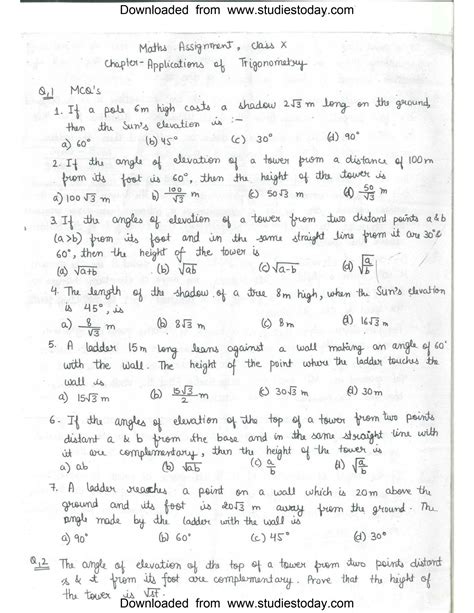 Downloaded from www.studiestoday.com
Maths Assignment, Class X
Chapter-Applications of Trigonometry
Q,1 MCQ's
1. If a pole 6m high casts a shadow 2√3 m long on the ground,
then the Sun's elevation is :-
a) 60° (b) 45° (c) 30° (d) 90°
2. If the angle of elevation of a tower from a distance of 100m
from its foot is 60°, then the height of the tower is
a) 100√3 m b) 100/√3 m (c) 50√3 m (d) 50/√3 m
3. If the angles of elevation of a tower from two distand points a & b
(a>b) from its foot and in the same straight line from it are 30° &
60°, then the height of the tower is
(a) √a+b (b) √ab (c) √a-b (d) √a/b
4. The length of the shadow of a tree 8m high, when the Sun's elevation
is 45°, is
a) 8/√3 m (b) 8√3 m (c) 8m (d) 16√3 m
5. A ladder 15m long leans against a wall making an angle of 60°
with the wall. The height of the point where the ladder touches the
wall is
a) 15√3 m (b) 15√3/2 m (c) 30√3 m (d) 30m
6. If the angles of elevation of the top of a tower from two points
distant a & b from the base and in the same straight line with
it are complementary, then the height of the tower is
a) ab (b) √ab (c) a/b (d) √a/b
7. A ladder reaches a point on a wall which is 20m above the
ground and its foot is 20√3 m away from the ground. The
angle made by the ladder with the wall is
a) 90° (b) 60° (c) 45° (d) 30°
Q,2 The angle of elevation of the top of a tower from two points distant
s & t from its foot are complementary. Prove that the height of
the tower is √st.
Downloaded from www.studiestoday.com